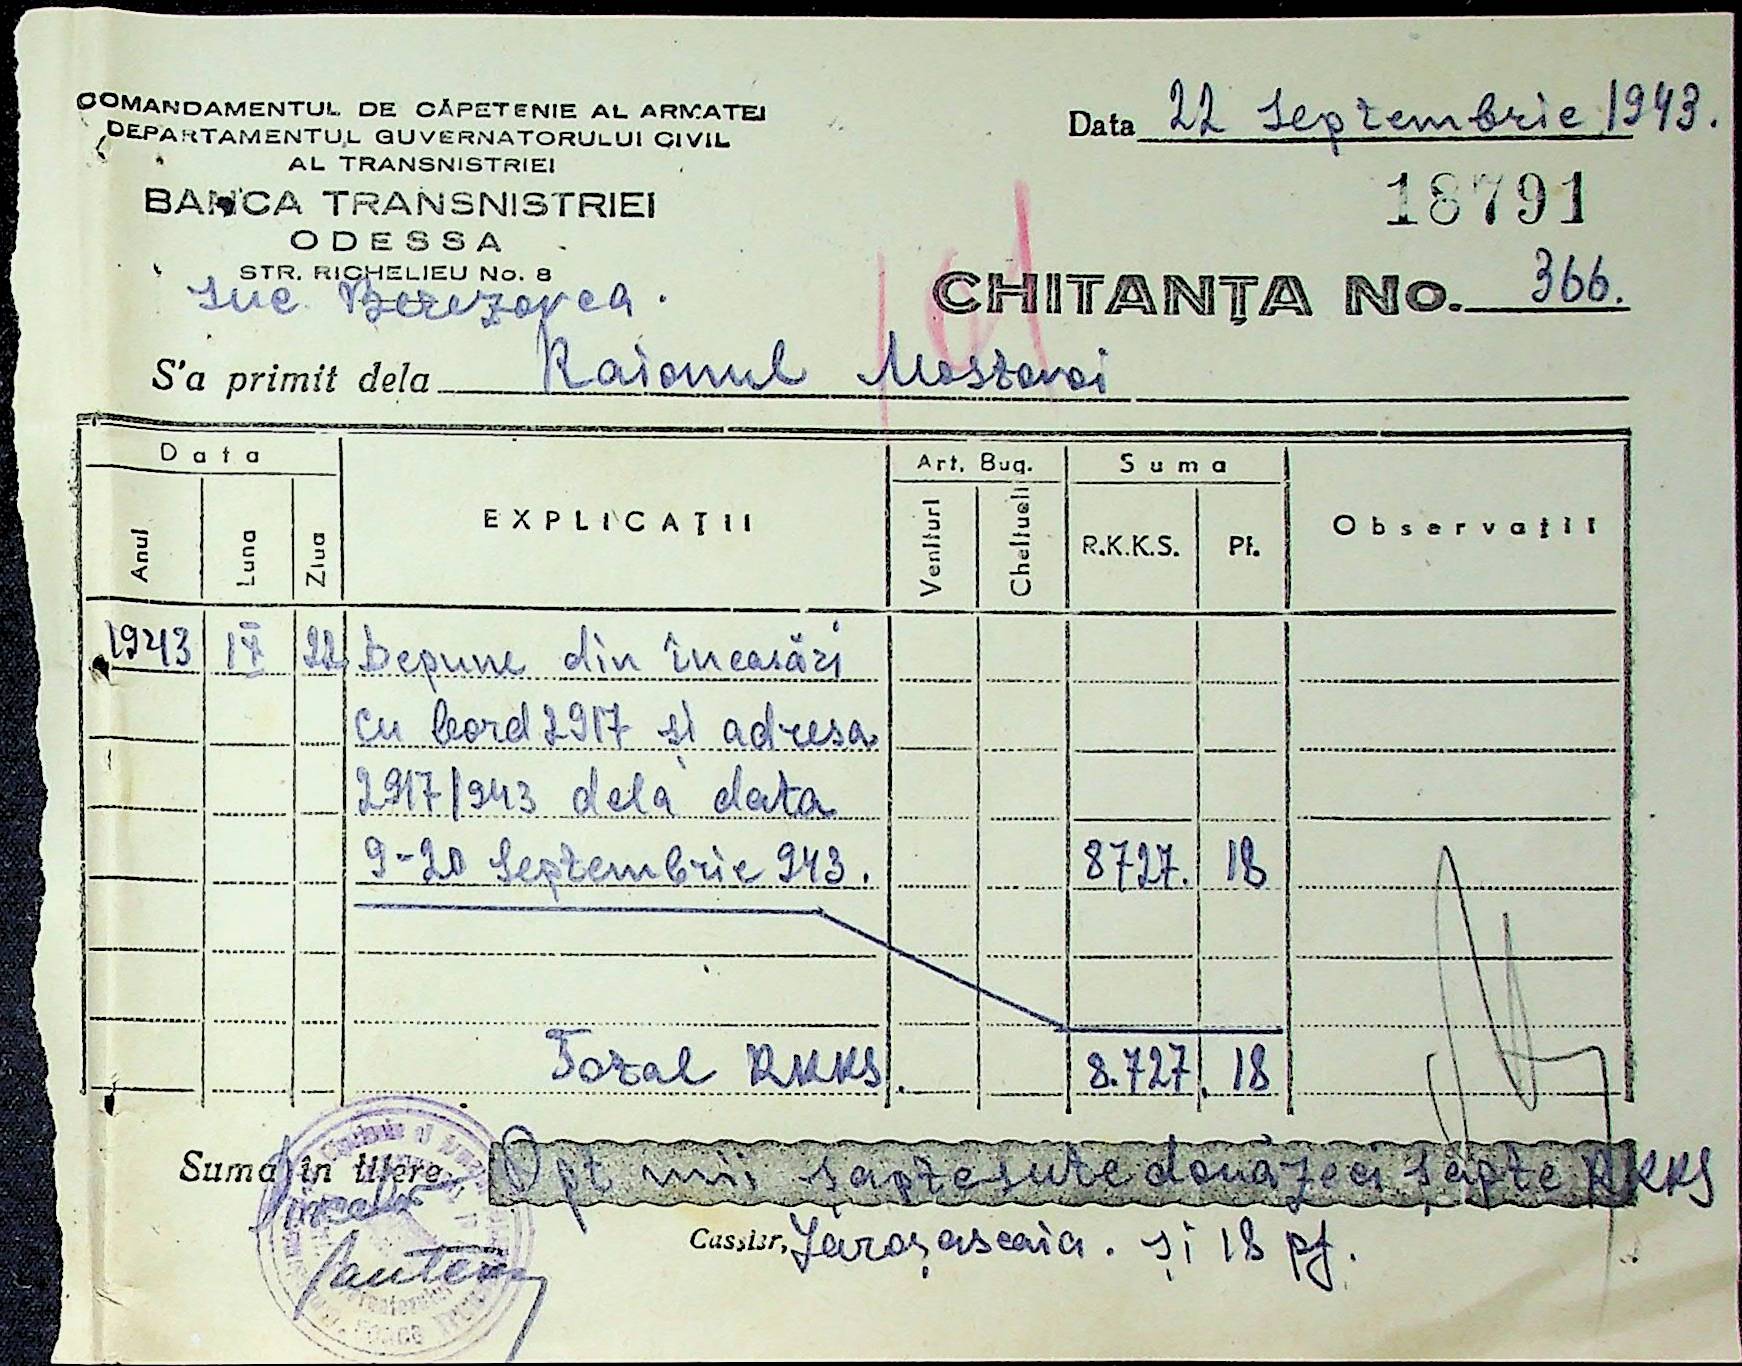 COMANDAMENTUL DE CĂPETENIE AL ARMATEI
DEPARTAMENTUL GUVERNATORULUI CIVIL
AL TRANSNISTRIEI
BANCA TRANSNISTRIEI
ODESSA
STR. RICHELIEU No. 8
Suc. Berezovca.
Data 22 Septembrie 1943.
18791
CHITANȚA No. 366.
S'a primit dela Raionul Mostovoi
Data Art. Bug. Suma
Anul Luna Ziua EXPLICAȚII Venituri Cheltueli R.K.K.S. Pf. Observații
1943 IX 22 Depune din încasări
cu bord 2917 și adresa
2917/943 dela data
9-20 Septembrie 943. 8727. 18
Total RKKS. 8.727. 18
Suma în litere Opt mii șaptesute douăzeci șapte RKKS
Cassier, și 18 pf.